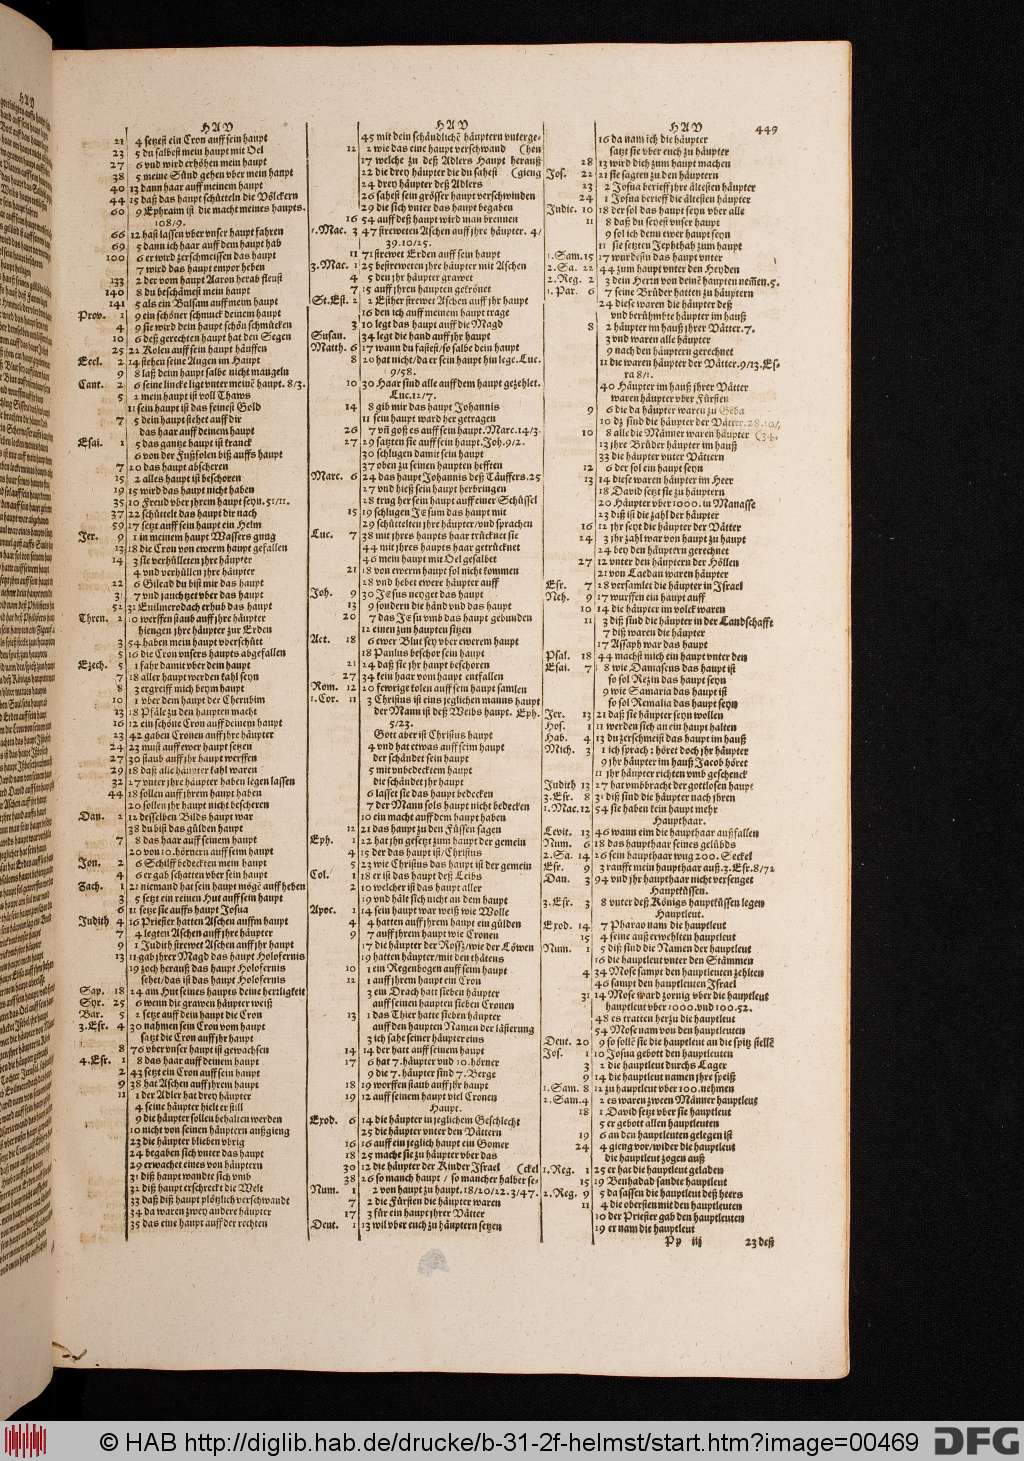 HAV
21 4 setzest ein Cron auff sein haupt
23 5 du salbest mein haupt mit Oel
27 6 vnd wird erhöhen mein haupt
38 5 meine Sünd gehen vber mein haupt
40 13 dann haar auff meinem haupt
44 15 daß das haupt schütteln die Völckern
60 9 Ephraim ist die macht meines haupts.
108/9.
66 12 hast lassen vber vnser haupt fahren
69 5 dann ich haar auff dem haupt hab
100 6 er wird zerschmeissen das haupt
7 wird das haupt empor heben
133 2 der vom haupt Aaron herab fleust
140 8 du beschämest mein haupt
141 5 als ein Balsam auff meim haupt
Prov. 1 9 ein schöner schmuck deinem haupt
4 9 sie wird dein haupt schön schmücken
10 6 deß gerechten haupt hat den Segen
25 22 Kolen auff sein haupt häuffen
Eccl. 2 14 stehen seine Augen im Haupt
9 8 laß deim haupt salbe nicht mangeln
Cant. 2 6 seine lincke ligt vnter meinē haupt. 8/3.
5 2 mein haupt ist voll Thaws
11 sein haupt ist das feinest Gold
7 5 dein haupt stehet auff dir
das haar auff deinem haupt
Esai. 1 5 das gantze haupt ist kranck
6 von der Fußsolen biß auffs haupt
7 20 das haupt abscheren
15 2 alles haupt ist beschoren
19 15 wird das haupt nicht haben
35 10 Freud vber jhrem haupt seyn. 51/11.
37 22 schüttelt das haupt dir nach
59 17 setzt auff sein haupt ein Helm
Jer. 9 1 in meinem haupt Wassers gnug
13 18 die Cron von ewerm haupt gefallen
14 3 sie verhülleten jhre häupter
4 vnd verhüllen jhre häupter
22 6 Gilead du bist mir das haupt
31 7 vnd jauchtzet vber das haupt
52 31 Euilmerodach erhub das haupt
Thren. 2 10 werffen staub auff jhre häupter
hiengen jhre häupter zur Erden
3 54 haben mein haupt vberschütt
5 16 die Cron vnsers haupts abgefallen
Ezech. 5 1 fahr damit vber dein haupt
7 18 aller haupt werden kahl seyn
8 3 ergreiff mich beym haupt
10 1 vber dem haupt der Cherubim
13 18 Pfäle zu den häuptern macht
16 12 ein schöne Cron auff deinem haupt
23 42 gaben Cronen auff jhre häupter
24 23 must auff ewer haupt setzen
27 30 staub auff jhr haupt werffen
29 18 daß alle häupter kahl waren
32 27 vnter jhre häupter haben legen lassen
44 18 sollen auff jhrem haupt haben
20 sollen jhr haupt nicht bescheren
Dan. 2 32 desselben Bilds haupt war
38 du bist das gülden haupt
7 8 das haar auff seinem haupt
20 von 10. hörnern auff seim haupt
Jon. 2 6 Schilff bedeckten mein haupt
4 6 er gab schatten vber sein haupt
Zach. 1 21 niemand hat sein haupt mögē auff heben
3 5 setzt ein reinen Hut auff sein haupt
6 11 setze sie auffs haupt Josua
Judith 4 16 Priester hatten Aschen auffm haupt
7 4 legten Aschen auff jhre häupter
9 1 Judith strewet Aschen auff jhr haupt
13 11 gab jhrer Magd das haupt Holofernis
19 zoch herauß das haupt Holofernis
sehet/das ist das haupt Holofernis
Sap. 18 24 am Hut seines haupts deine herrligkeit
Syr. 25 6 wenn die grawen häupter weiß
Bar. 5 2 setzt auff dein haupt die Cron
3. Esr. 4 30 nahmen sein Cron vom haupt
satzt die Cron auff jhr haupt
8 76 vber vnser haupt ist gewachsen
4. Esr. 1 8 das haar auff deinem haupt
2 43 setzt ein Cron auff sein haupt
9 38 hat Aschen auff jhrem haupt
11 1 der Adler hat drey häupter
4 seine häupter hielt er still
9 die häupter sollen behalten werden
10 nicht von seinen häuptern außgieng
23 die häupter blieben vbrig
24 begaben sich vnter das haupt
29 erwachet eines von häuptern
31 diß haupt wandte sich vmb
32 diß haupt erschreckt die Welt
33 daß diß haupt plötzlich verschwande
34 da waren zwey andere häupter
35 das eine haupt auff der rechten
HAV
45 mit dein schändlichē häuptern vnterge-
12 2 wie das eine haupt verschwand (hen
17 welche zu deß Adlers Haupt herauß
22 die drey häupter die du sahest (gieng
24 drey häupter deß Adlers
26 sahest sein grösser haupt verschwinden
29 die sich vnter das haupt begaben
16 54 auff deß haupt wird man brennen
1. Mac. 3 47 streweten Aschen auff jhre häupter. 4/
39.10/25.
11 71 strewet Erden auff sein haupt
3. Mac. 1 25 bestreweten jhre häupter mit Aschen
4 5 den jhr häupter grawet
7 15 auff jhren häupten gekrönet
St. Est. 2 2 Esther strewet Aschen auff jhr haupt
16 den ich auff meinem haupt trage
3 10 legt das haupt auff die Magd
Susan. 34 legt die hand auff jhr haupt
Matth. 6 17 wann du fastest/so salbe dein haupt
8 20 hat nicht/da er sein haupt hin lege. Luc.
9/58.
10 30 Haar sind alle auff dem haupt gezehlet.
Luc. 12/7.
14 8 gib mir das haupt Johannis
11 sein haupt ward her getragen
26 7 vñ goß es auff sein haupt. Marc. 14/3.
27 29 satzten sie auff sein haupt. Joh. 9/2.
30 schlugen damit sein haupt
37 oben zu seinen haupten hefften
Marc. 6 24 das haupt Johannis deß Täuffers. 25
27 vnd hieß sein haupt herbringen
28 trug her sein haupt auff einer Schüssel
15 19 schlugen Jesum das haupt mit
29 schüttelten jhre häupter/vnd sprachen
Luc. 7 38 mit jhres haupts haar trücknet sie
44 mit jhres haupts haar getrücknet
46 mein haupt mit Oel gesalbet
21 18 von ewerm haupt sol nicht kommen
28 vnd hebet ewere häupter auff
Joh. 9 30 Jesus neyget das haupt
13 9 sondern die händ vnd das haupt
20 7 das Jesu vmb das haupt gebunden
12 einen zun haupten sitzen
Act. 18 6 ewer Blut sey vber ewerem haupt
18 Paulus beschor sein haupt
21 24 daß sie jhr haupt beschoren
27 34 kein haar vom haupt entfallen
Rom. 12 20 fewrige kolen auff sein haupt samlen
1. Cor. 11 3 Christus ist eines jeglichen manns haupt
der Mann ist deß Weibs haupt. Eph.
5/23.
Gott aber ist Christus haupt
4 vnd hat etwas auff seim haupt
der schändet sein haupt
5 mit vnbedecktem haupt
die schändet jhr haupt
6 lasset sie das haupt bedecken
7 der Mann sols haupt nicht bedecken
10 ein macht auff dem haupt haben
12 21 das haupt zu den Füssen sagen
Eph. 1 22 hat jhn gesetzt zum haupt der gemein
4 15 der das haupt ist/Christus
5 23 wie Christus das haupt ist der gemein
Col. 1 18 er ist das haupt deß Leibs
2 10 welcher ist das haupt aller
19 vnd hält sich nicht an dem haupt
Apoc. 1 14 sein haupt war weiß wie Wolle
4 4 hatten auff jhrem haupt ein gülden
9 7 auff jhrem haupt wie Cronen
17 die häupter der Rossz/wie der Löwen
19 hatten häupter/mit den thätens
10 1 ein Regenbogen auff seim haupt
12 1 auff jhrem haupt ein Cron
3 ein Drach hatt sieben häupter
auff seinen haupten sieben Cronen
13 1 das Thier hatte sieben häupter
auff den haupten Namen der lästerung
3 ich sahe seiner häupter eins
14 14 der hatt auff seinem haupt
17 6 hat 7. häupter vnd 10. hörner
9 die 7. häupter sind 7. Berge
18 19 worffen staub auff jhr haupt
19 12 auff seinem haupt viel Cronen
Haupt.
Exod. 6 14 die häupter in jeglichem Geschlecht
25 die häupter vnter den Vättern
16 16 auff ein jeglich haupt ein Gomer
18 25 macht sie zu häupter vber das
30 12 die häupter der Kinder Israel (ckel
38 26 so manch haupt / so mancher halber se-
Num. 1 2 von haupt zu haupt. 18/20/22.3/47.
7 2 die Fürsten die häupter waren
17 3 für ein haupt jhrer Vätter
Deut. 1 13 wil vber euch zu häuptern setzen
HAV 449
16 da nam ich die häupter
satzt sie vber euch zu häupter
28 13 wird dich zum haupt machen
Jos. 22 21 sie sagten zu den häuptern
23 2 Josua berieff jhre ältesten häupter
24 1 Josua berieff die ältesten häupter
Judic. 10 18 der sol das haupt seyn vber alle
11 8 daß du seyest vnser haupt
9 sol ich denn ewer haupt seyn
11 sie setzten Jephthah zum haupt
1. Sam. 15 17 wurdestu das haupt vnter
2. Sa. 22 44 zum haupt vnter den Heyden
2. Reg. 2 3 dein Herrn von deinē haupten nem̄en. 5.
1. Par. 6 7 seine Brüder hatten zu häuptern
24 diese waren die häupter deß
vnd berühmbte häupter im hauß
8 2 häupter im hauß jhrer Vätter. 7.
3 vnd waren alle häupter
9 nach den häuptern gerechnet
11 die waren häupter der Vätter. 9/13. Es-
ra 8/1.
40 Häupter im hauß jhrer Vätter
waren häupter vber Fürsten
9 6 die da häupter waren zu Geba
10 dz sind die häupter der Vätter. 28.10/
10 8 alle die Männer waren häupter (34.
13 jhre Brüder häupter im hauß
33 die häupter vnter Vättern
12 6 der sol ein haupt seyn
13 14 diese waren häupter im Heer
18 David setzt sie zu häuptern
20 Häupter vber 1000. in Manasse
23 diß ist die zahl der häupter
16 12 jhr seyt die häupter der Vätter
24 3 jhr zahl war von haupt zu haupt
24 bey den häuptern gerechnet
27 12 vnter den häuptern der Höllen
21 von Laedan waren häupter
Esr. 7 28 versamlet die häupter in Israel
Neh. 9 17 wurffen ein haupt auff
10 14 die häupter im volck waren
11 3 diß sind die häupter in der Landschafft
7 diß waren die häupter
17 Assaph war das haupt
Psal. 18 44 machst mich ein haupt vnter den
Esai. 7 8 wie Damascus das haupt ist
so sol Rezin das haupt seyn
9 wie Samaria das haupt ist
so sol Remalia das haupt seyn
Jer. 13 21 daß sie häupter seyn wollen
Hos. 1 11 werden sich an ein haupt halten
Hab. 4 13 du zerschmeist das haupt im hauß
Mich. 3 1 ich sprach: höret doch jhr häupter
9 jhr häupter im hauß Jacob höret
11 jhr häupter richten vmb geschenck
Judith 13 27 hat vmbbracht der gottlosen haupt
3. Esr. 8 31 diß sind die häupter nach jhren
1. Mac. 12 54 sie haben kein haupt mehr
Haupthaar.
Levit. 13 46 wann eim die haupthaar außfallen
Num. 6 18 das haupthaar seines gelübds
2. Sa. 14 26 sein haupthaar wug 200. Seckel
Esr. 9 3 raufft mein haupthaar auß. 3. Esr. 8/72
Dan. 3 94 vnd jhr haupthaar nicht versenget
Hauptküssen.
3. Esr. 3 8 vnter deß Königs hauptküssen legen
Hauptleut.
Exod. 14 7 Pharao nam die hauptleut
15 4 seine außerwehlten hauptleut
Num. 1 5 diß sind die Namen der hauptleut
16 die hauptleut vnter den Stämmen
4 34 Mose sampt den hauptleuten zehlten
46 sampt den hauptleuten Israel
31 14 Mose ward zornig vber die hauptleut
hauptleut vber 1000. vnd 100. 52.
48 es tratten herzu die hauptleut
54 Mose nam von den hauptleuten
Deut. 20 9 so sollē sie die hauptleut an die spitz stellē
Jos. 1 10 Josua gebott den hauptleuten
3 2 die hauptleut durchs Lager
9 14 die hauptleut namen jhre speiß
1. Sam. 8 12 zu hauptleut vber 100. nehmen
2. Sam. 4 2 es waren zween Männer hauptleut
18 1 David setzt vber sie hauptleut
5 er gebott allen hauptleuten
19 6 an den hauptleuten gelegen ist
24 4 gieng vor/wider die hauptleut
die hauptleut zogen auß
1. Reg. 1 25 er hat die hauptleut geladen
15 19 Benhadad sandte hauptleut
2. Reg. 9 5 da sassen die hauptleut deß heers
11 4 die obersten mit den hauptleuten
10 der Priester gab den hauptleuten
19 er nam die hauptleut
Pp iij 23 deß
© HAB http://diglib.hab.de/drucke/b-31-2f-helmst/start.htm?image=00469
DFG